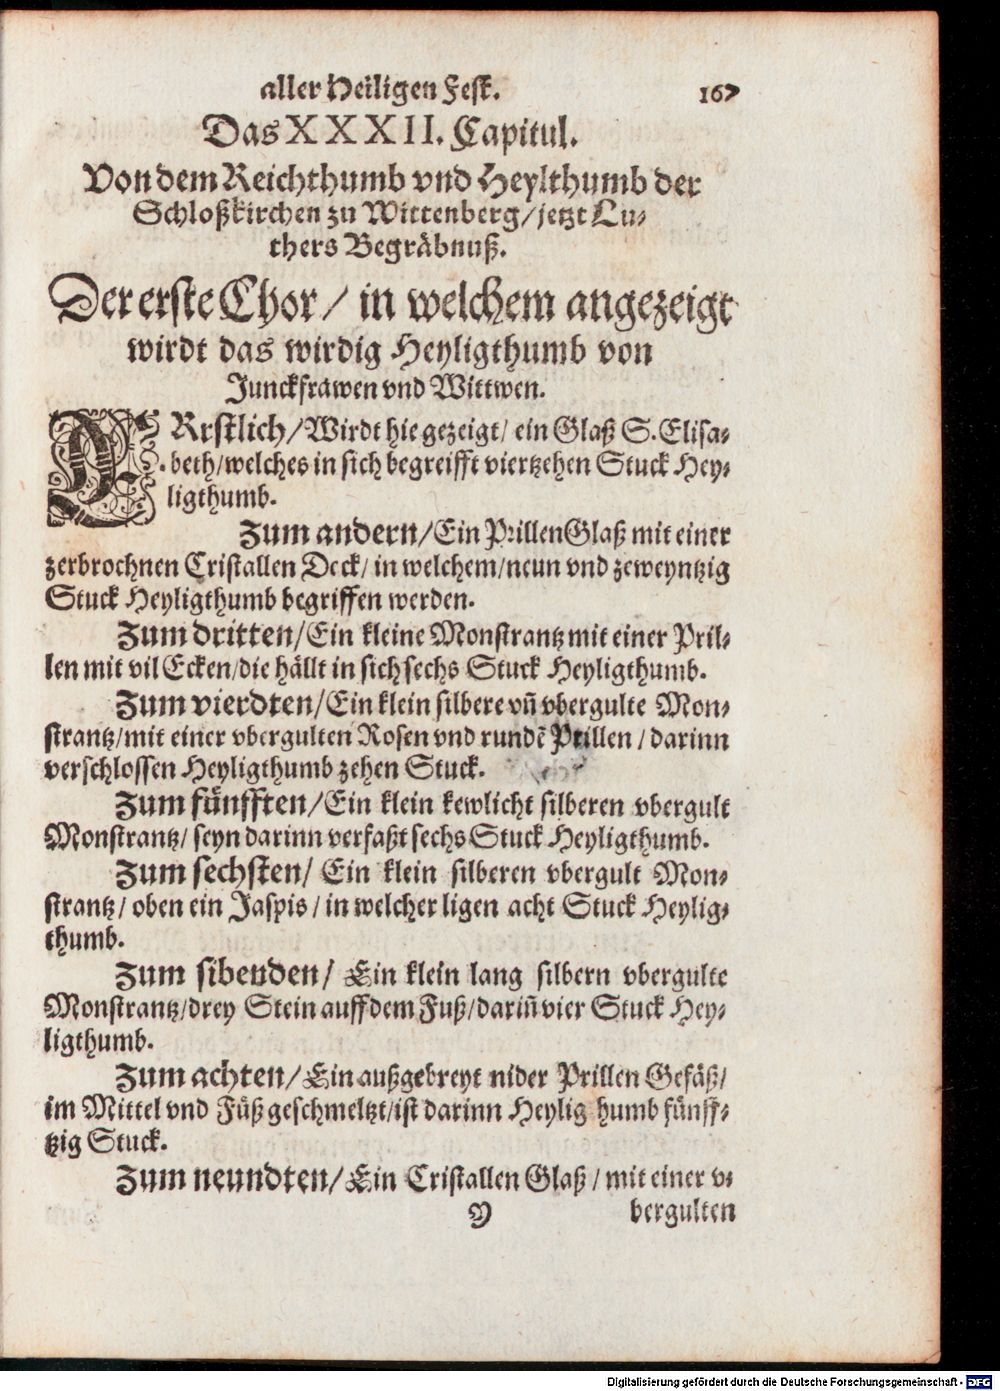 aller Heiligen Fest. 167
Das XXXII. Capitul.
Von dem Reichthumb vnd Heylthumb der
Schloßkirchen zu Wittenberg/jetzt Lu-
thers Begräbnuß.
Der erste Chor/ in welchem angezeigt
wirdt das wirdig Heyligthumb von
Junckfrawen vnd Wittwen.
ERrstlich/Wirdt hie gezeigt/ ein Glaß S. Elisa-
beth/welches in sich begreifft viertzehen Stuck Hey-
ligthumb.
Zum andern/Ein Prillen Glaß mit einer
zerbrochnen Cristallen Deck/ in welchem/neun vnd zeweyntzig
Stuck Heyligthumb begriffen werden.
Zum dritten/Ein kleine Monstrantz mit einer Pril-
len mit vil Ecken/die hällt in sich sechs Stuck Heyligthumb.
Zum vierdten/Ein klein silbere vñ vbergulte Mon-
strantz/mit einer vbergulten Rosen vnd rundẽ Prillen / darinn
verschlossen Heyligthumb zehen Stuck.
Zum fünfften/Ein klein kewlicht silberen vbergult
Monstrantz/ seyn darinn verfaßt sechs Stuck Heyligthumb.
Zum sechsten/ Ein klein silberen vbergult Mon-
strantz/ oben ein Jaspis / in welcher ligen acht Stuck Heylig-
thumb.
Zum sibenden/ Ein klein lang silbern vbergulte
Monstrantz/drey Stein auff dem Fuß/dariñ vier Stuck Hey-
ligthumb.
Zum achten/Ein außgebreyt nider Prillen Gefäß/
im Mittel vnd Füß geschmeltzt/ist darinn Heylig humb fünff-
tzig Stuck.
Zum neundten/Ein Cristallen Glaß / mit einer v-
Y bergulten
Digitalisierung gefördert durch die Deutsche Forschungsgemeinschaft - DFG